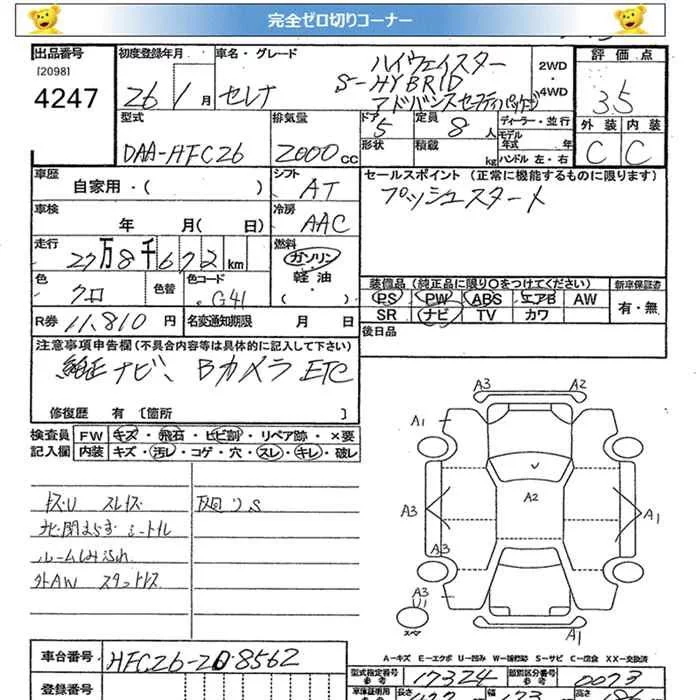 完全ゼロ切りコーナー
出品番号
[2098]
4247
初度登録年月
26 / 1月
車名・グレード
セレナ
ハイウェイスター
S-HYBRID
アドバンスセーフティパッケージ
2WD
・
4WD
評価点
3.5
外装 内装
C C
型式
DAA-HFC26
排気量
2000 cc
ドア
5
定員
8人
ディーラー・並行
モデル
年式 年
形状
積載 kg
ハンドル 左・右
車歴
自家用・( )
シフト
AT
セールスポイント (正常に機能するものに限ります)
プッシュスタート
車検
年 月( 日)
冷房
AAC
走行
27万8千672km
燃料
ガソリン
・
軽油
・
( )
色
クロ
色替
色コード
G41
装備品 (純正品に限り○をつけてください)
新車保証書
PS PW ABS エアB AW
有・無
SR ナビ TV カワ
R券 11,810円
名変通知期限 月 日
後日品
注意事項申告欄(不具合内容等は具体的に記入して下さい)
純正ナビ、Bカメラ ETC
修復歴 有 [箇所 ]
検査員
記入欄
FW キズ・飛石・ヒビ割・リペア跡・×要
内装 キズ・汚レ・コゲ・穴・スレ・キレ・破レ
キズU スレキズ
ルームしみ汚れ
外AW
A3 A2
A1
A3
A2
A1
A3
A3
U1
スペア
A1
A-キズ E-エクボ U-凹み W-補修跡 S-サビ C-腐食 XX-交換済
車台番号
HFC26-208562
型式指定番号
参考
17324
類別区分番号
参考
0073
登録番号
車庫証明用
長さ
幅
高さ